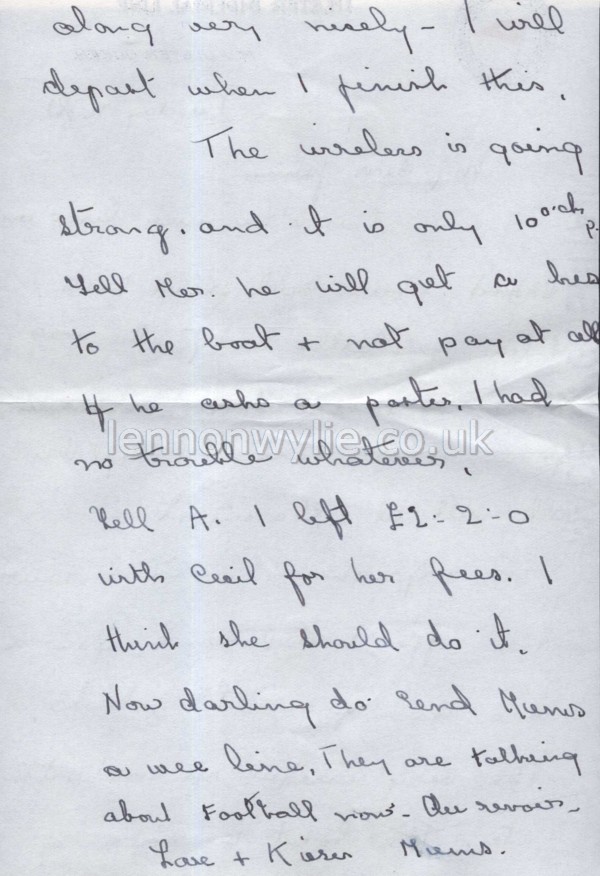 along very nicely - I will
depart when I finish this.
The wireless is going
strong. and it is only 10 o'ck
p.
Tell Mer. he will get a bus
to the boat + not pay at all
If he asks a porter. I had
lennonwylie.co.uk
no trouble whatever.
Tell A. I left £2-2-0
with Cecil for her fees. I
think she should do it.
Now darling do send Mums
a wee line. They are talking
about Football now - Au revoir -
Love + Kisses Mums.